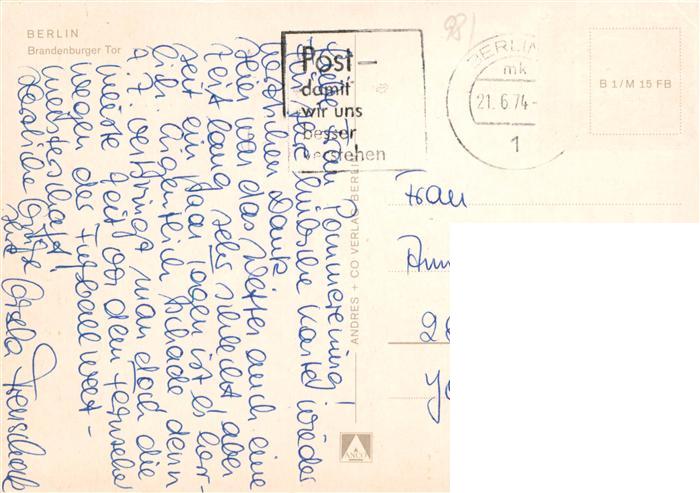 BERLIN
Brandenburger Tor
Post -
damit
wir uns
besser
verstehen
BERLIN
mk
21.6.74-
1
B 1/M 15 FB
Liebe Frau Pommerening!
Für Ihre hübsche Karte wieder
herzlichen Dank.
Hier war das Wetter auch eine
Zeit lang sehr schlecht aber
seit ein paar Tagen ist es herr-
lich. Eigentlich schade denn
z.Z. verbringt man doch die
meiste Zeit vor dem Fernseher
wegen der Fußball welt-
meisterschaft!
Herzliche Grüße
Ihre Ursula
ANDRES + CO VERLAG BERLIN
Frau
ANCO